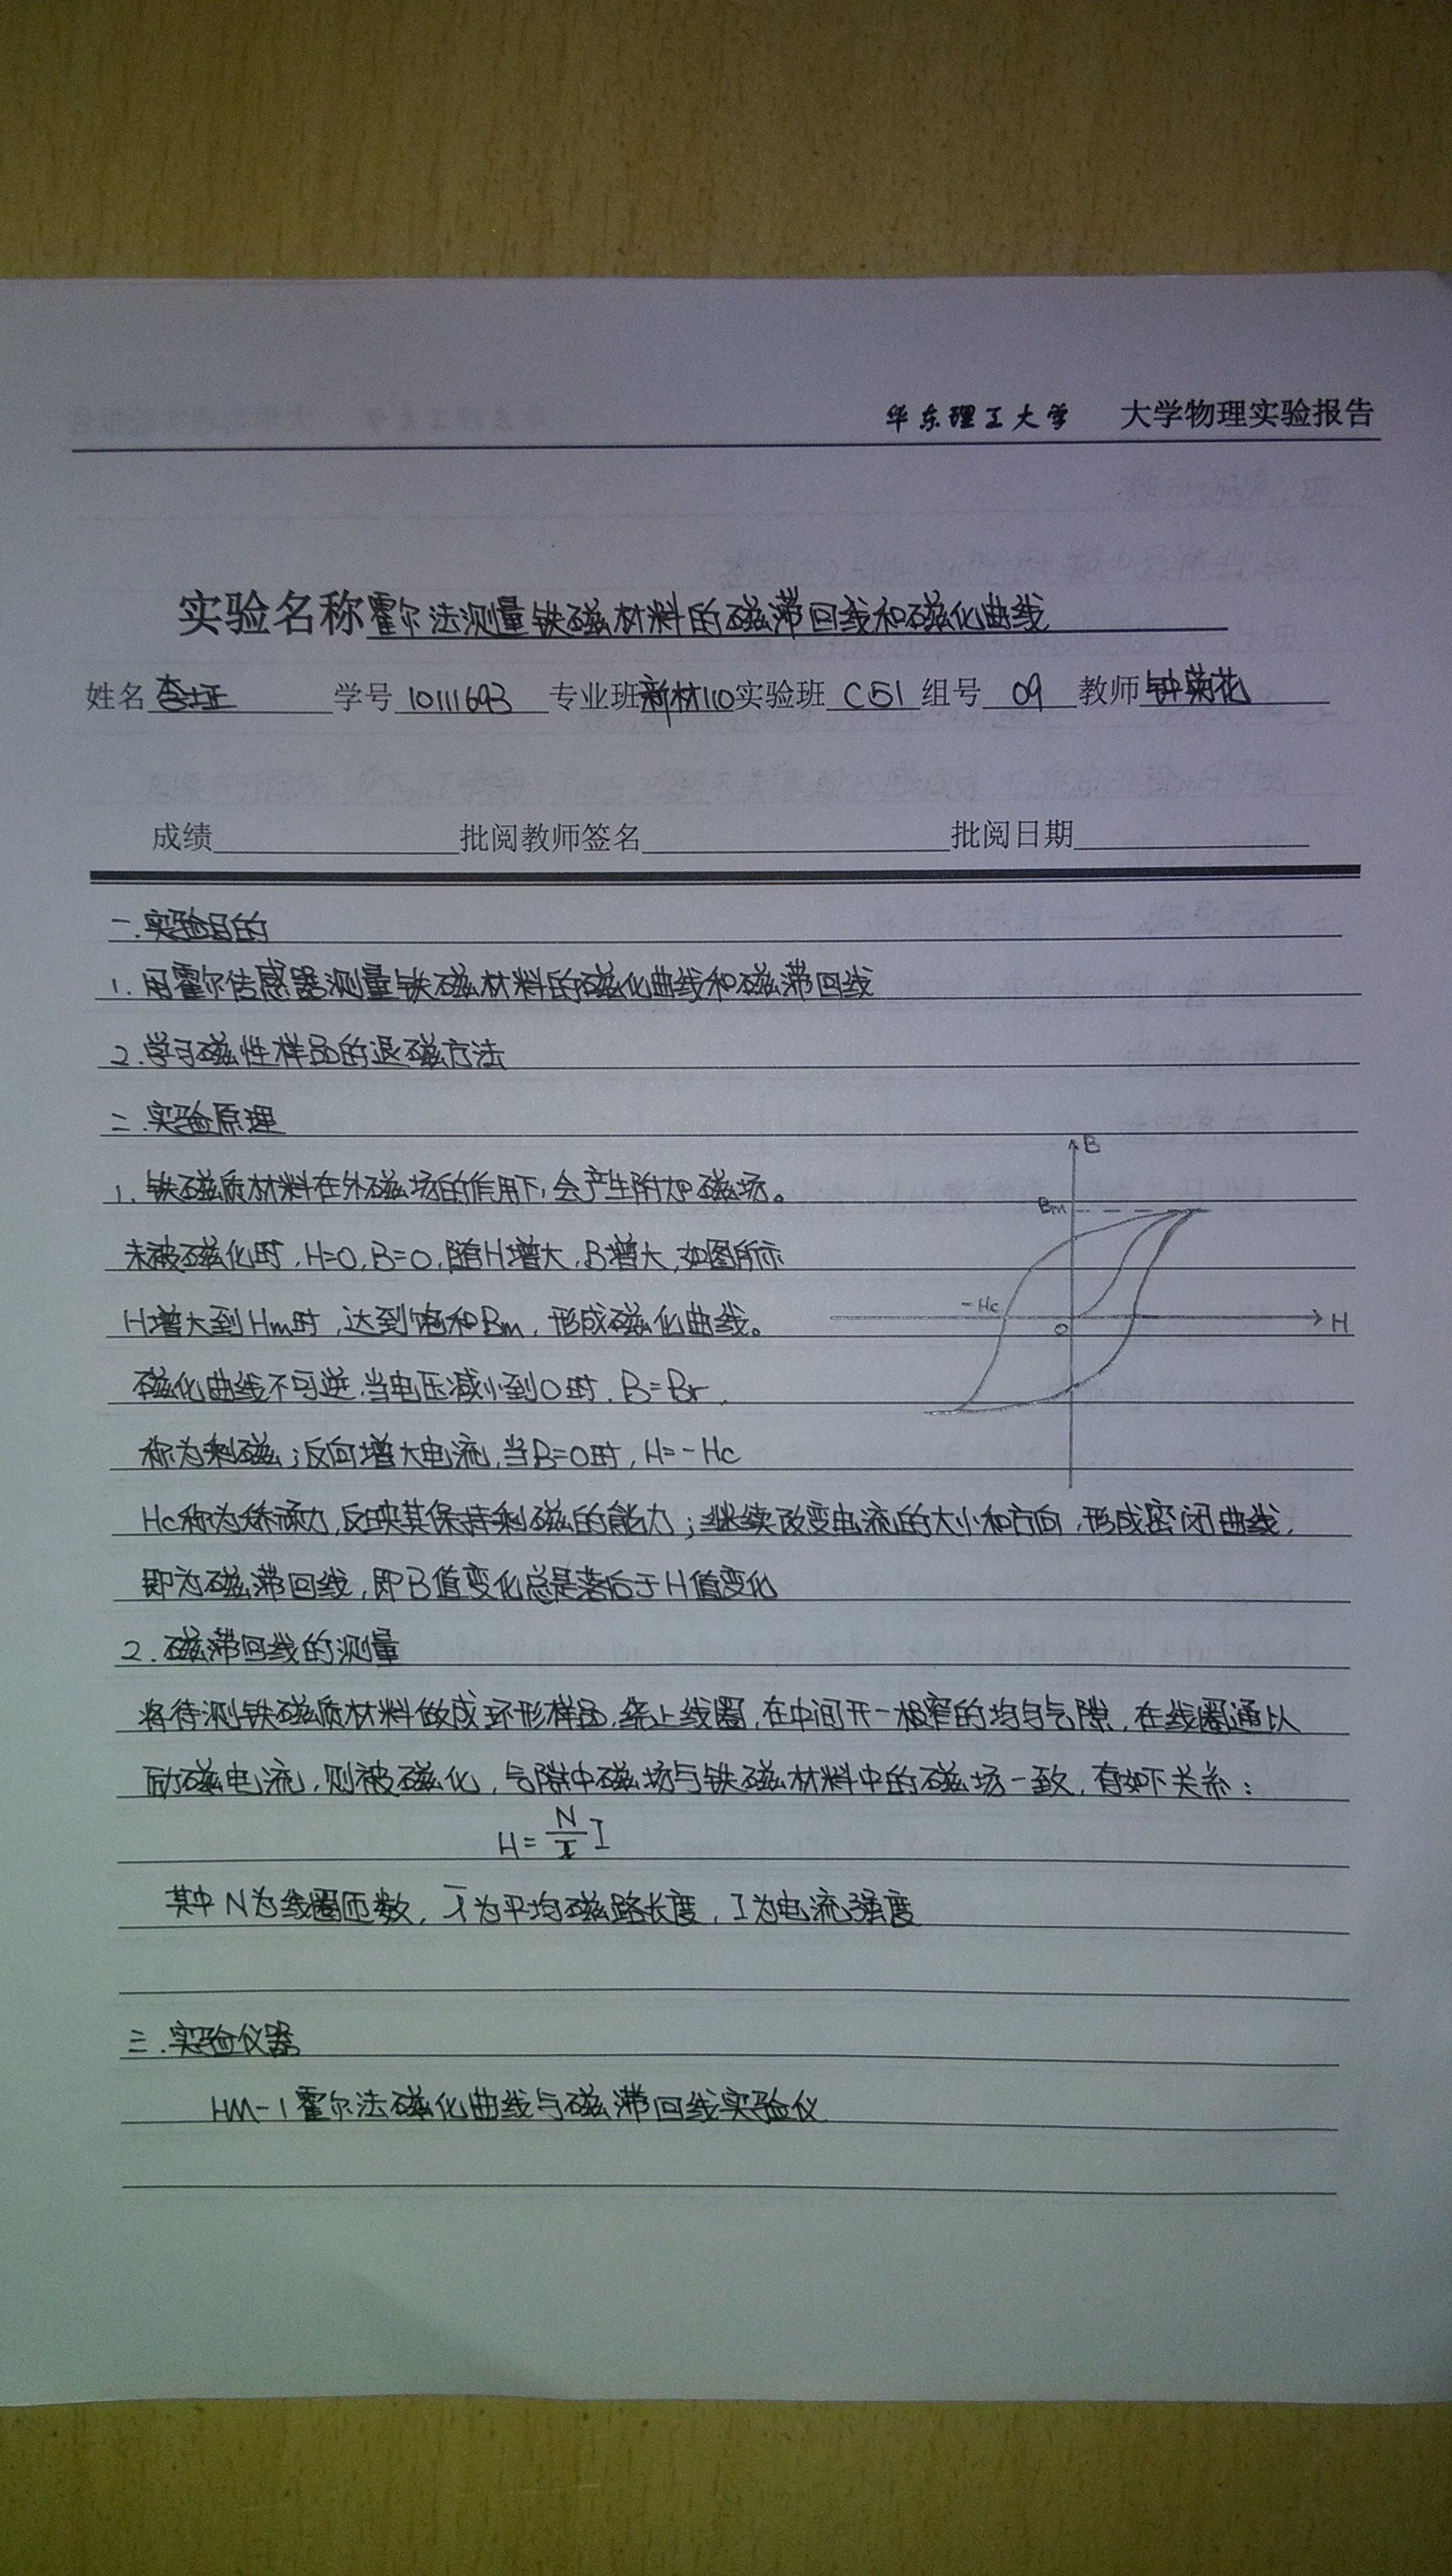 华东理工大学 大学物理实验报告
实验名称 霍尔法测量铁磁材料的磁滞回线和磁化曲线
姓名 李 学号 10111693 专业班 新材110 实验班 C51 组号 09 教师 钟菊花
成绩 批阅教师签名 批阅日期
一.实验目的
1.用霍尔传感器测量铁磁材料的磁化曲线和磁滞回线
2.学习磁性样品的退磁方法
二.实验原理
1.铁磁质材料在外磁场的作用下,会产生附加磁场。
未被磁化时,H=0,B=0,随H增大,B增大,如图所示
H增大到Hm时,达到饱和Bm,形成磁化曲线。
磁化曲线不可逆,当电压减小到0时,B=Br,
称为剩磁;反向增大电流,当B=0时,H=-Hc
Hc称为矫顽力,反映其保持剩磁的能力;继续改变电流的大小和方向,形成密闭曲线,
即为磁滞回线,即B值变化总是落后于H值变化
B
Bm
-Hc
O
H
2.磁滞回线的测量
将待测铁磁质材料做成环形样品,绕上线圈,在中间开一极窄的均匀气隙,在线圈通以
励磁电流,则被磁化,气隙中磁场与铁磁材料中的磁场一致,有如下关系:
H=N/l̄ I
其中N为线圈匝数,l̄为平均磁路长度,I为电流强度
三.实验仪器
HM-1霍尔法磁化曲线与磁滞回线实验仪